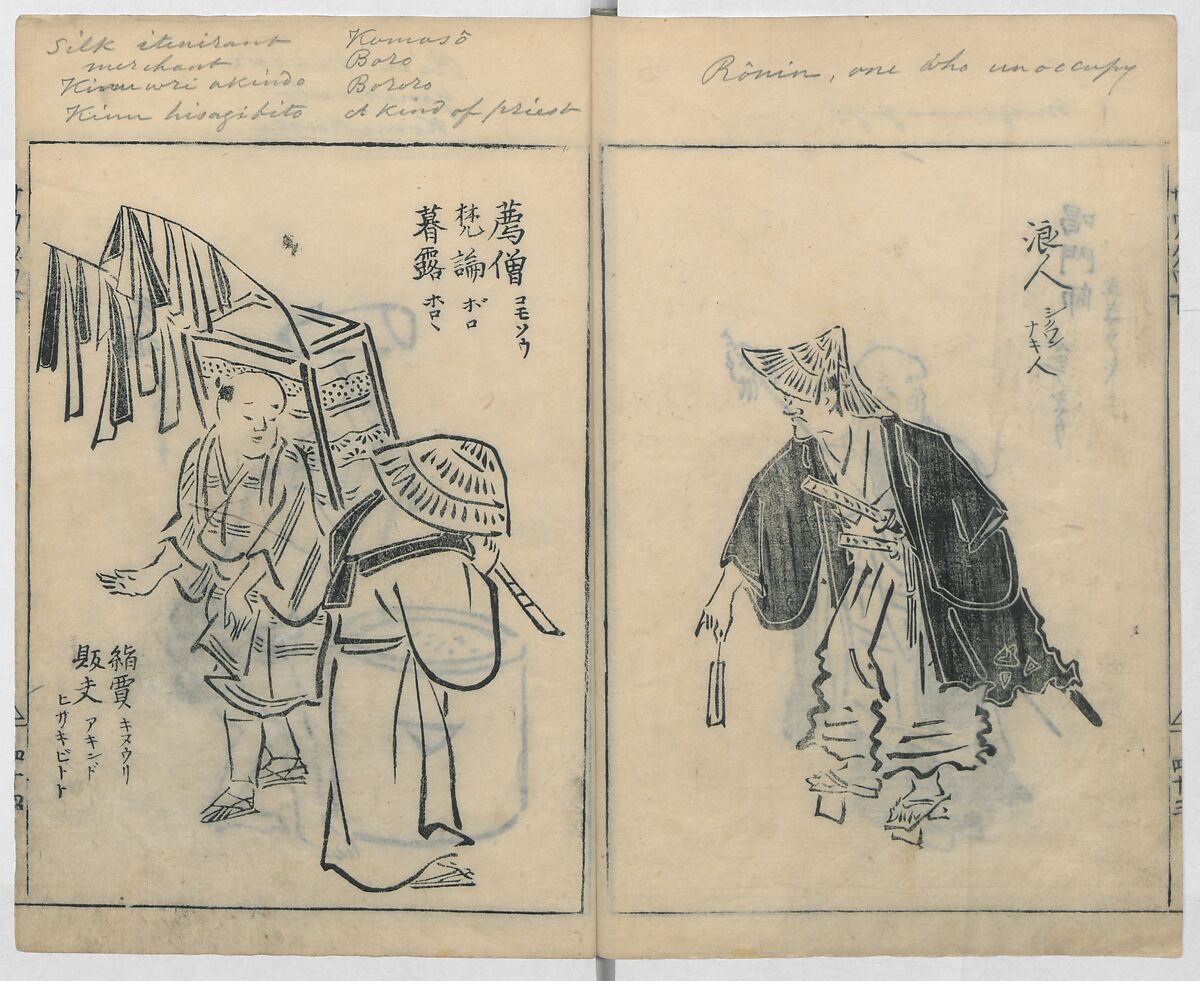 Silk itenirant
merchant
Kinu uri akindo
Kinu hisagibito
Komosō
Boro
Bororo
A kind of priest
Rōnin, one who unoccupy
薦僧 コモソウ
梵論 ボロ
暮露 ホロ〻
絹賣 キヌウリ
販夫 アキンド
ヒサキビト
浪人
ナキ人